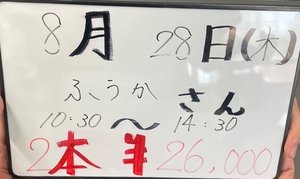 8月 28日(木)
ふうか さん
10:30 〜 14:30
2本 ¥26,000